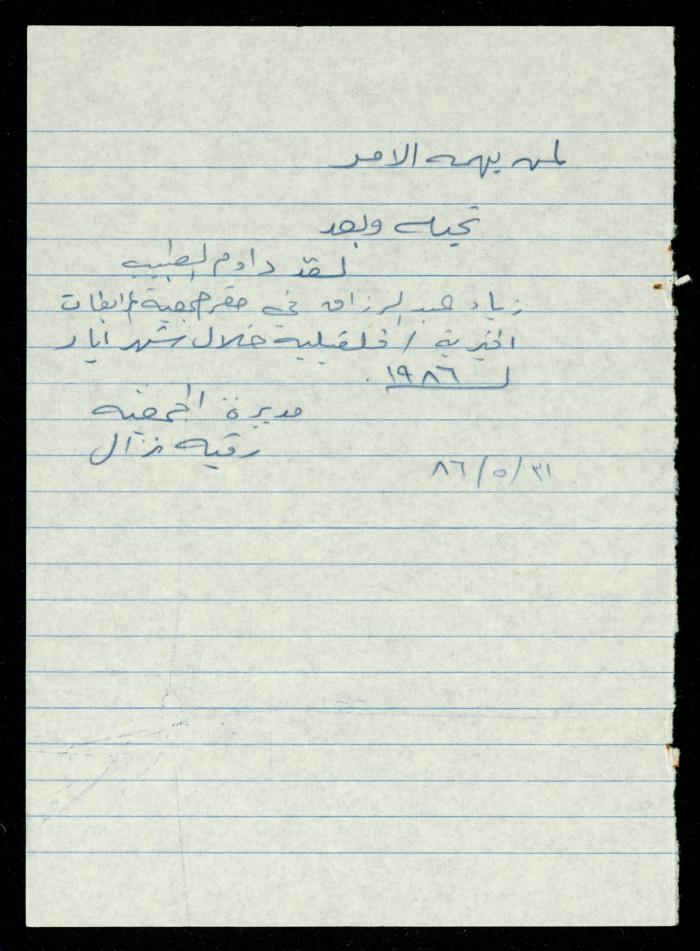 لمن يهمه الامر
تحيه وبعد
لقد داوم الطبيب
زياد عبد الرزاق في مقر جمعية المرابطات
الخيرية / قلقيلية خلال شهر ايار
لــ ١٩٨٦.
مديرة الجمعيه
رقيه نزال
٨٦/٥/٣١